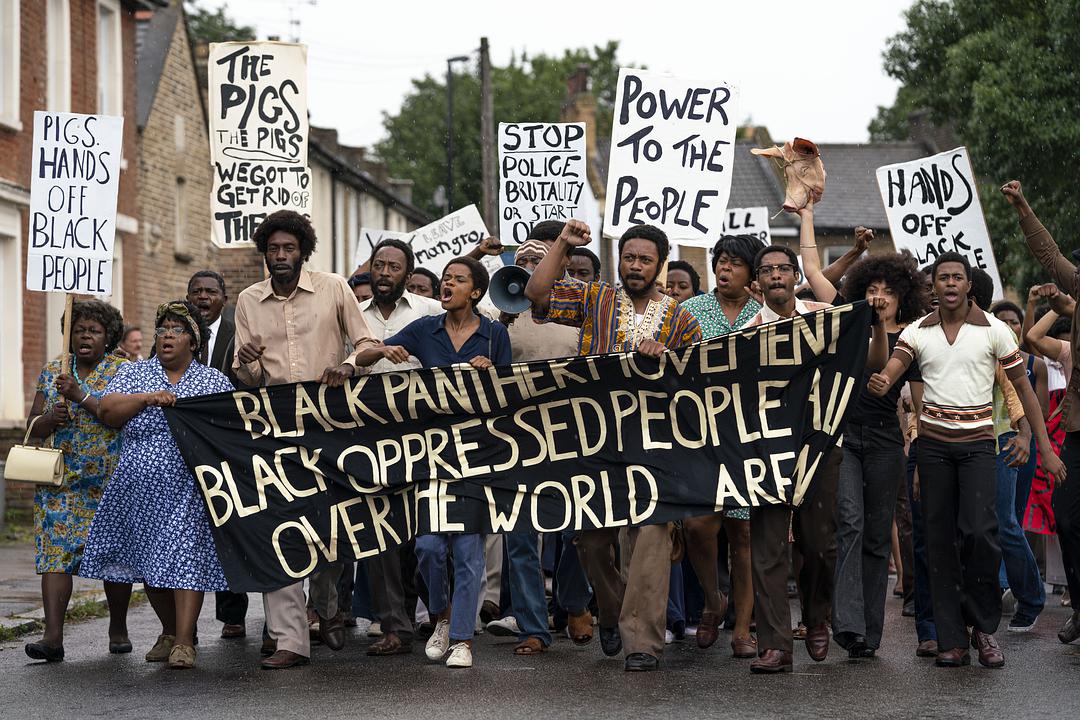 PIGS.
HANDS
OFF
BLACK
PEOPLE
THE
PIGS
THE PIGS
WE GOT TO
GET RID OF
THE
LEAVE
STOP
POLICE
BRUTALITY
OR START
POWER
TO THE
PEOPLE
HANDS
OFF
BLACK PANTHER MOVEMENT
BLACK OPPRESSED PEOPLE All
OVER THE WORLD ARE